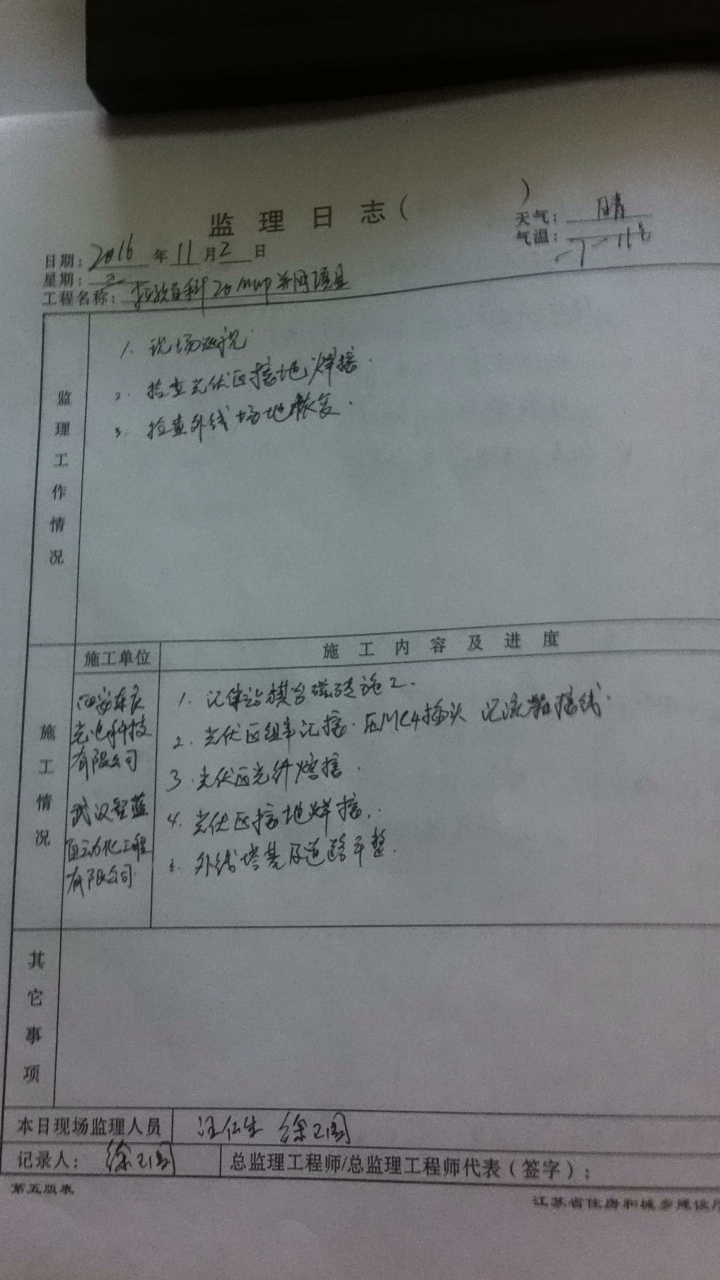 监 理 日 志 ( )
天气: 晴
日期: 2016 年 11 月 2 日
气温: -7-11℃
星期: 三
工程名称: 20MWP 并网项目
监理工作情况
1. 现场巡视
2. 检查光伏区接地焊接.
3. 检查外线场地恢复.
施工情况
施工单位
施 工 内 容 及 进 度
光电科技
有限公司
武汉智蓝
自动化工程
有限公司
1. 施工.
2. 光伏区组串汇接. 压MC4插头 汇流箱接线.
3. 光伏区光纤熔接.
4. 光伏区接地焊接.
5. 外线塔基及道路平整.
其它事项
本日现场监理人员 汪仁生 徐卫国
记录人: 徐卫国 总监理工程师/总监理工程师代表(签字):
第五版表
江苏省住房和城乡建设厅